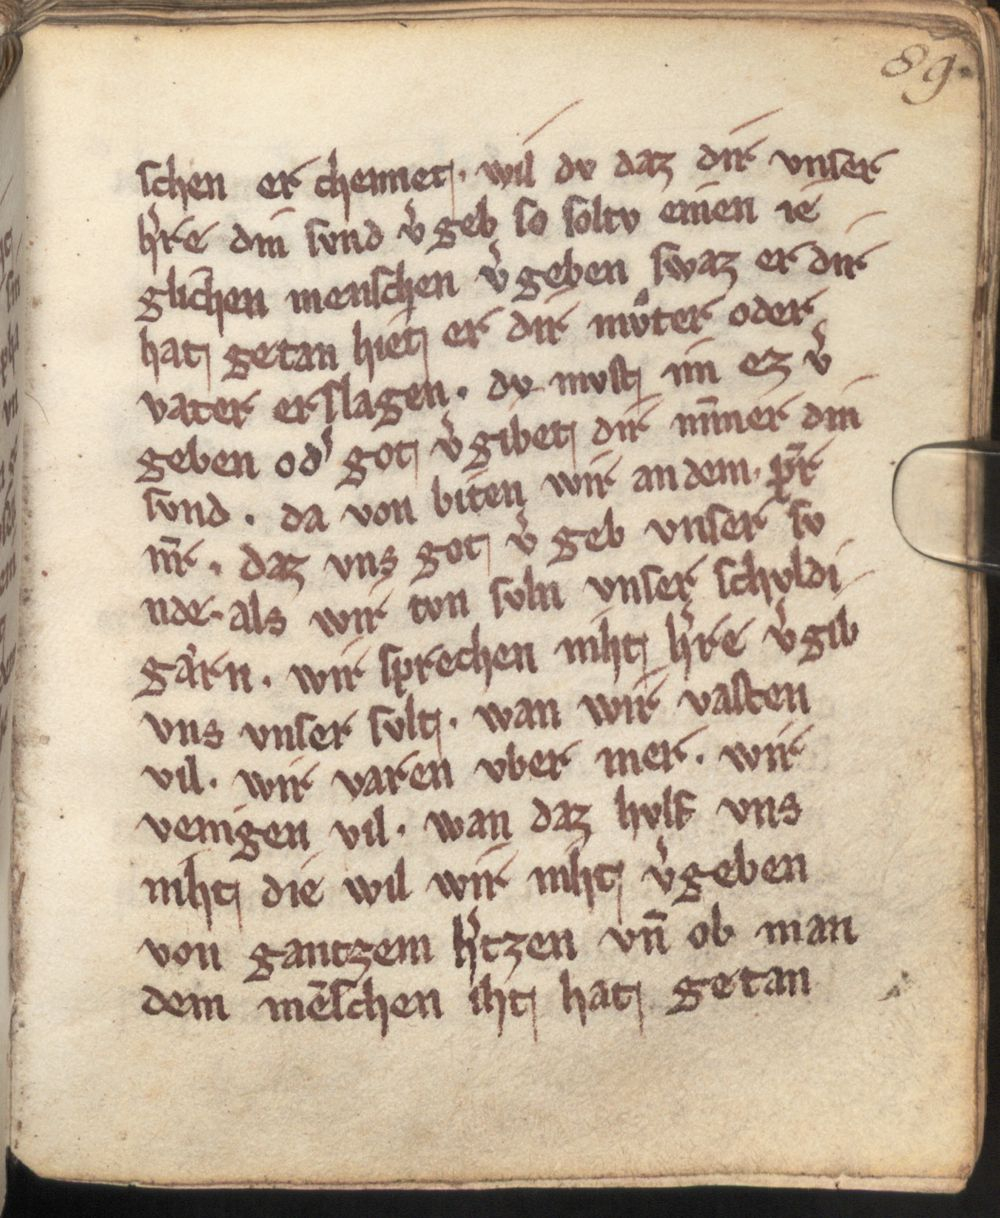 89.
schen er chennet. wil dv daz dir vnser
h̛re din svnd v̛geb so soltv einen ie
glichen menschen v̛geben swaz er dir
hat getan hiet er dir mvͦter oder
vater erslagen. dv mvst im ez v̛
geben od̛ got v̛gibet dir nim̄er din
svnd. da von biten wir an dem. pr̄
nr̄. daz vns got v̛geb vnser sv
nde. als wir tvn svln vnser schvldi
gærn. wir sprechen niht h̛re v̛gib
vns vnser svlt. wan wir vasten
vil. wir varen vber mer. wir
venigen vil. wan daz hvlf vns
niht die wil wir niht v̛geben
von gantzem h̛tzen vn̄ ob man
dem mēschen iht hat getan